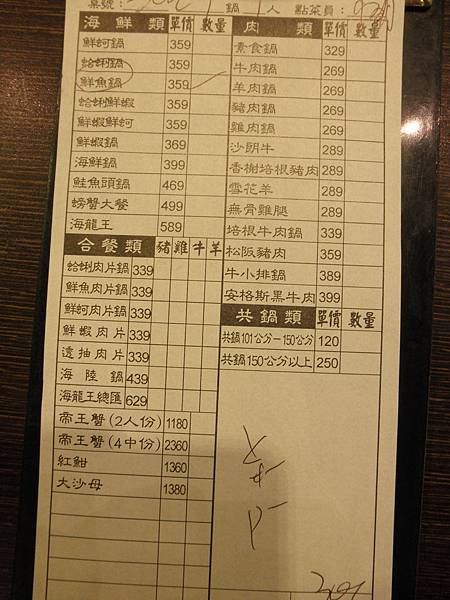 桌號： 鍋 人 點菜員：
海鮮類 單價 數量
鮮蚵鍋 359
蛤蜊鍋 359
鮮魚鍋 359
蛤蜊鮮蝦 359
鮮蝦鮮蚵 359
鮮蝦鍋 369
海鮮鍋 399
鮭魚頭鍋 469
螃蟹大餐 499
海龍王 589
合餐類 豬 雞 牛 羊
蛤蜊肉片鍋 339
鮮魚肉片鍋 339
鮮蚵肉片鍋 339
鮮蝦肉片 339
透抽肉片 339
海陸鍋 439
海龍王總匯 629
帝王蟹(2人份) 1180
帝王蟹(4中份) 2360
紅魽 1360
大沙母 1380
肉類 單價 數量
素食鍋 329
牛肉鍋 269
羊肉鍋 269
豬肉鍋 269
雞肉鍋 269
沙朗牛 289
香榭培根豬肉 289
雪花羊 289
無骨雞腿 289
培根牛肉鍋 339
松阪豬肉 359
牛小排鍋 389
安格斯黑牛肉 399
共鍋類 單價 數量
共鍋101公分－150公分 120
共鍋150公分以上 250